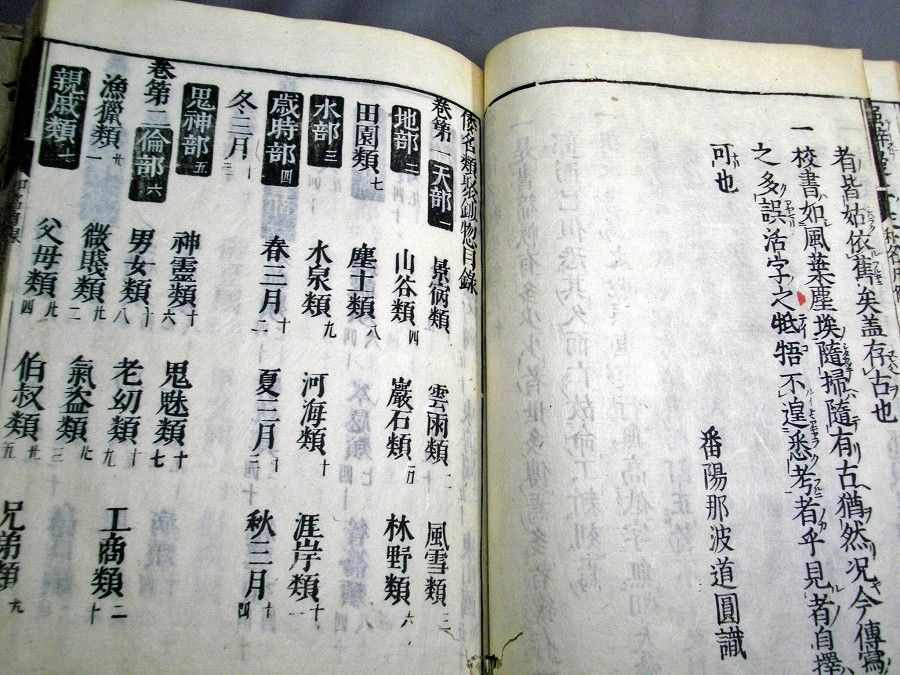 者皆姑依舊矣蓋存古也
一校書如風葉塵埃隨掃隨有古猶然况今傳寫
之多誤活字之牴牾不遑悉考者乎見者自擇
可也
番陽那波道圓識
倭名類聚鈔惣目錄
卷第一 天部一 景宿類一 雲雨類二 風雪類三
地部二 山谷類四 巖石類五 林野類六
田園類七 塵土類八
水部三 水泉類九 河海類十 涯岸類十一
歲時部四 春三月十二 夏三月十三 秋三月十四
冬三月十五
鬼神部五 神靈類十六 鬼魅類十七
卷第二 倫部六 男女類十八 老幼類十九 工商類二十
漁獵類廿一 微賤類廿二 氣盗類廿三
親戚類七 父母類廿四 伯叔類廿五 兄弟類